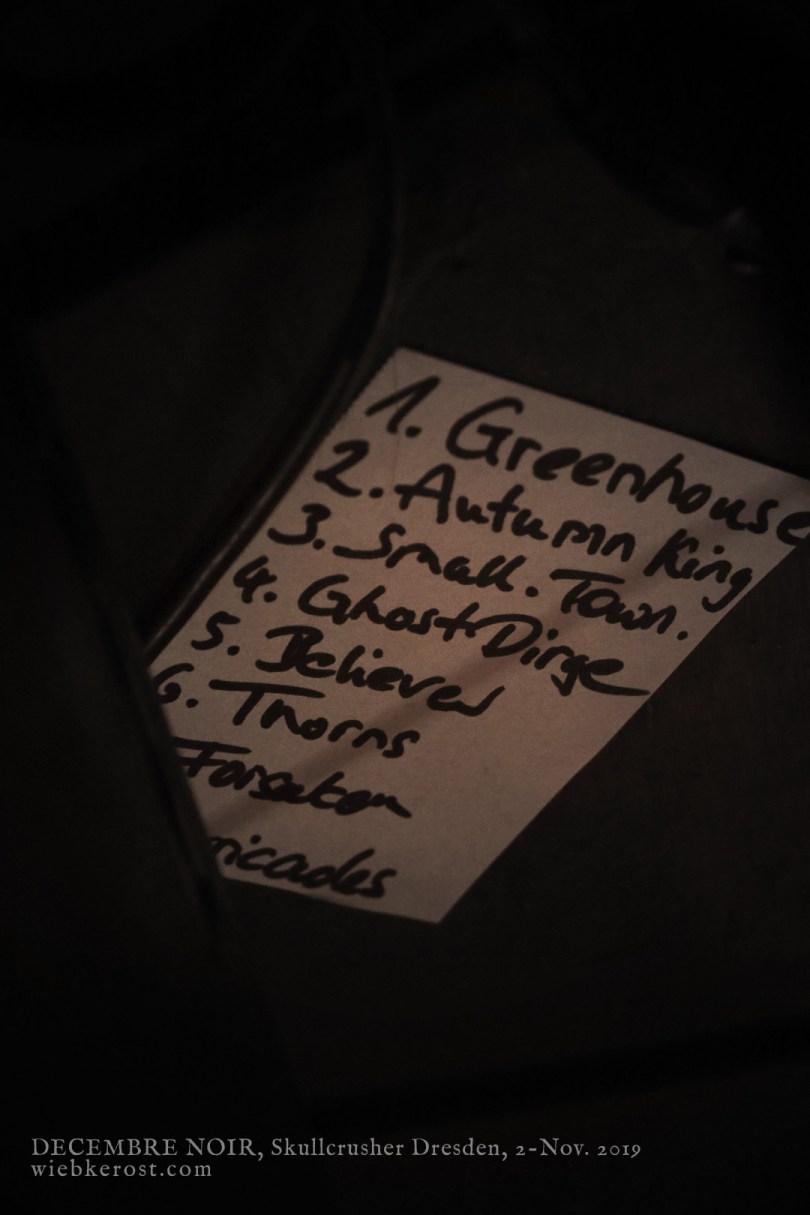 1. Greenhouse
2. Autumn King
3. Small. Town.
4. Ghost Dirge
5. Believer
6. Thorns
Forsaken
ricades
DECEMBRE NOIR, Skullcrusher Dresden, 2-Nov. 2019
wiebkerost.com